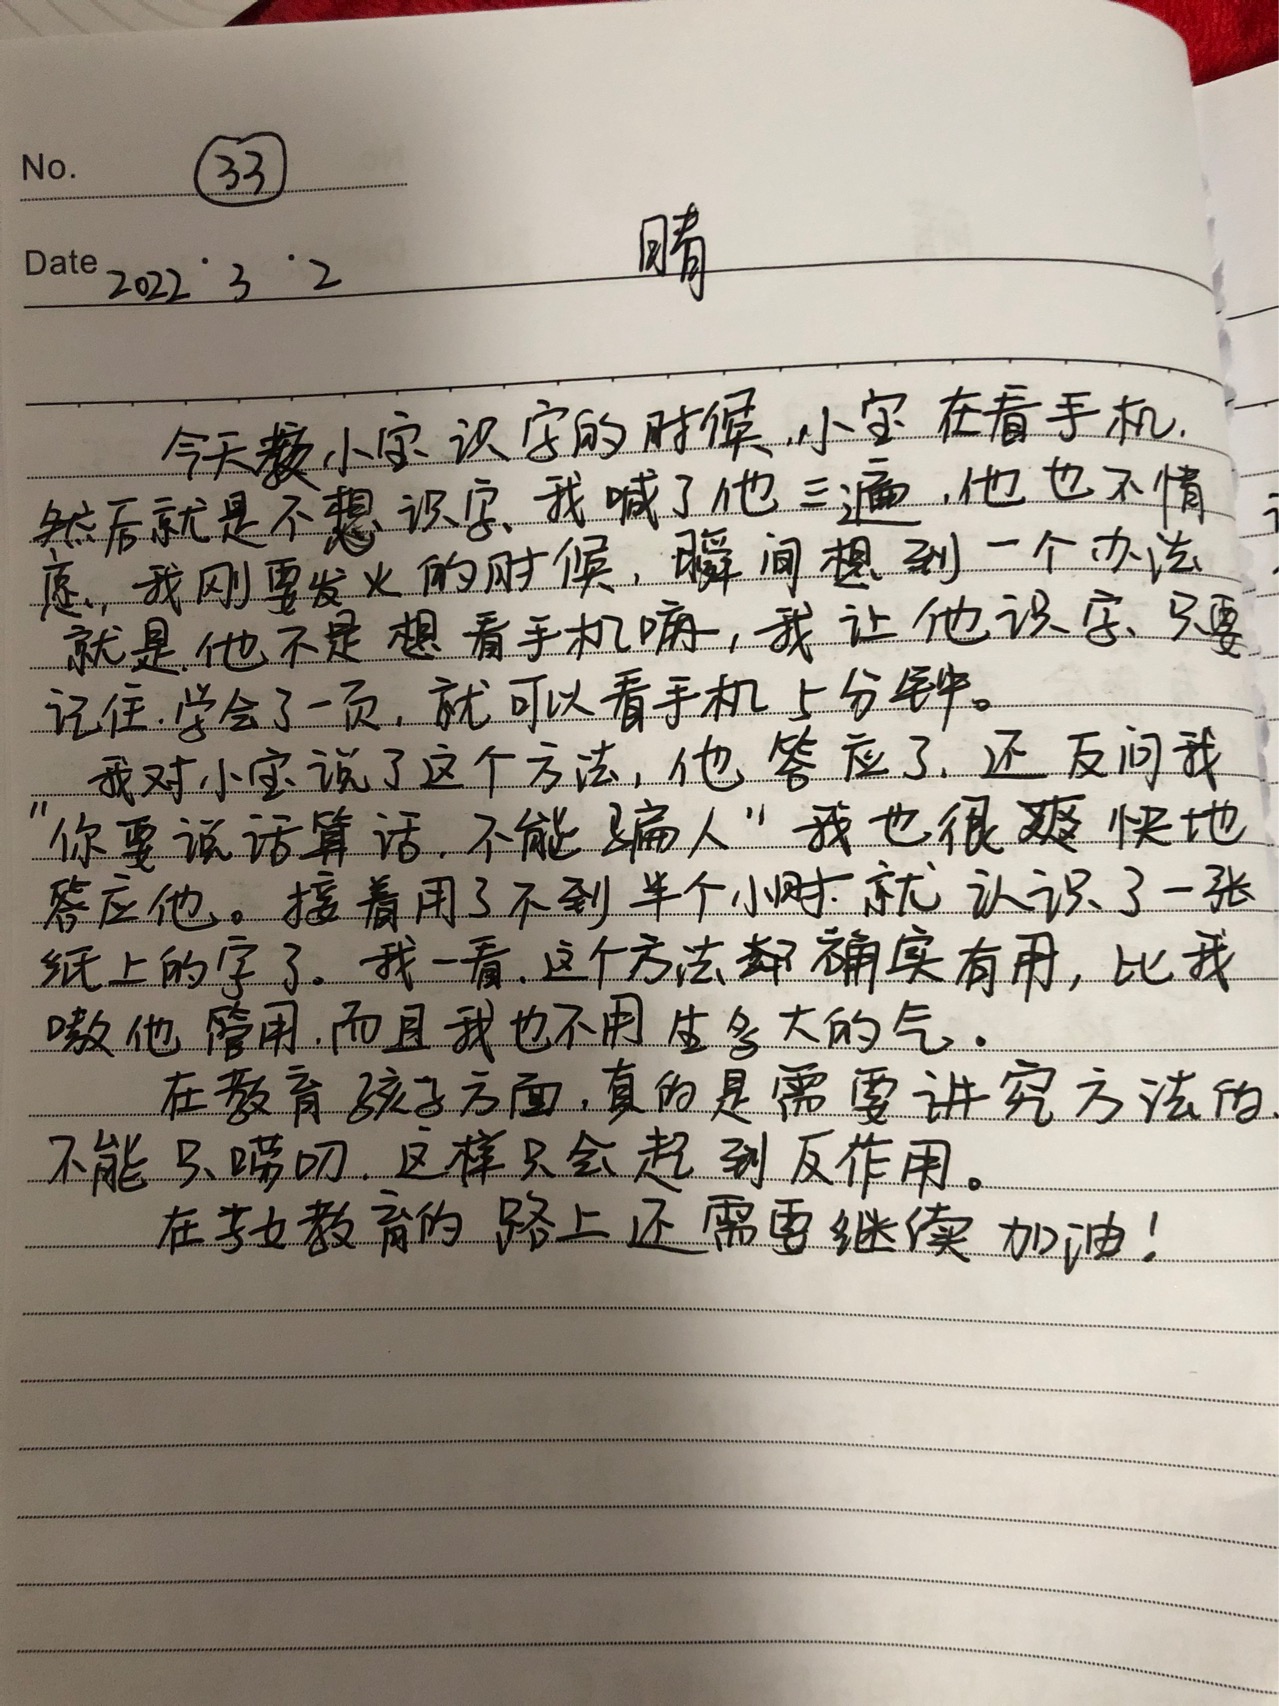 No. 33
Date 2022.3.2 晴
今天教小宝识字的时候,小宝在看手机.
然后就是不想识字、我喊了他三遍,他也不情
愿,我刚要发火的时候,瞬间想到一个办法
就是.他不是想看手机嘛,我让他识字、只要
记住.学会了一页,就可以看手机5分钟。
我对小宝说了这个方法,他答应了.还反问我
"你要说话算话.不能骗人"我也很爽快地
答应他。接着用了不到半个小时.就认识了一张
纸上的字了。我一看.这个方法确实有用,比我
嗷他管用.而且我也不用生多大的气.
在教育孩子方面,真的是需要讲究方法的.
不能只唠叨.这样只会起到反作用。
在教育的路上还需要继续加油!